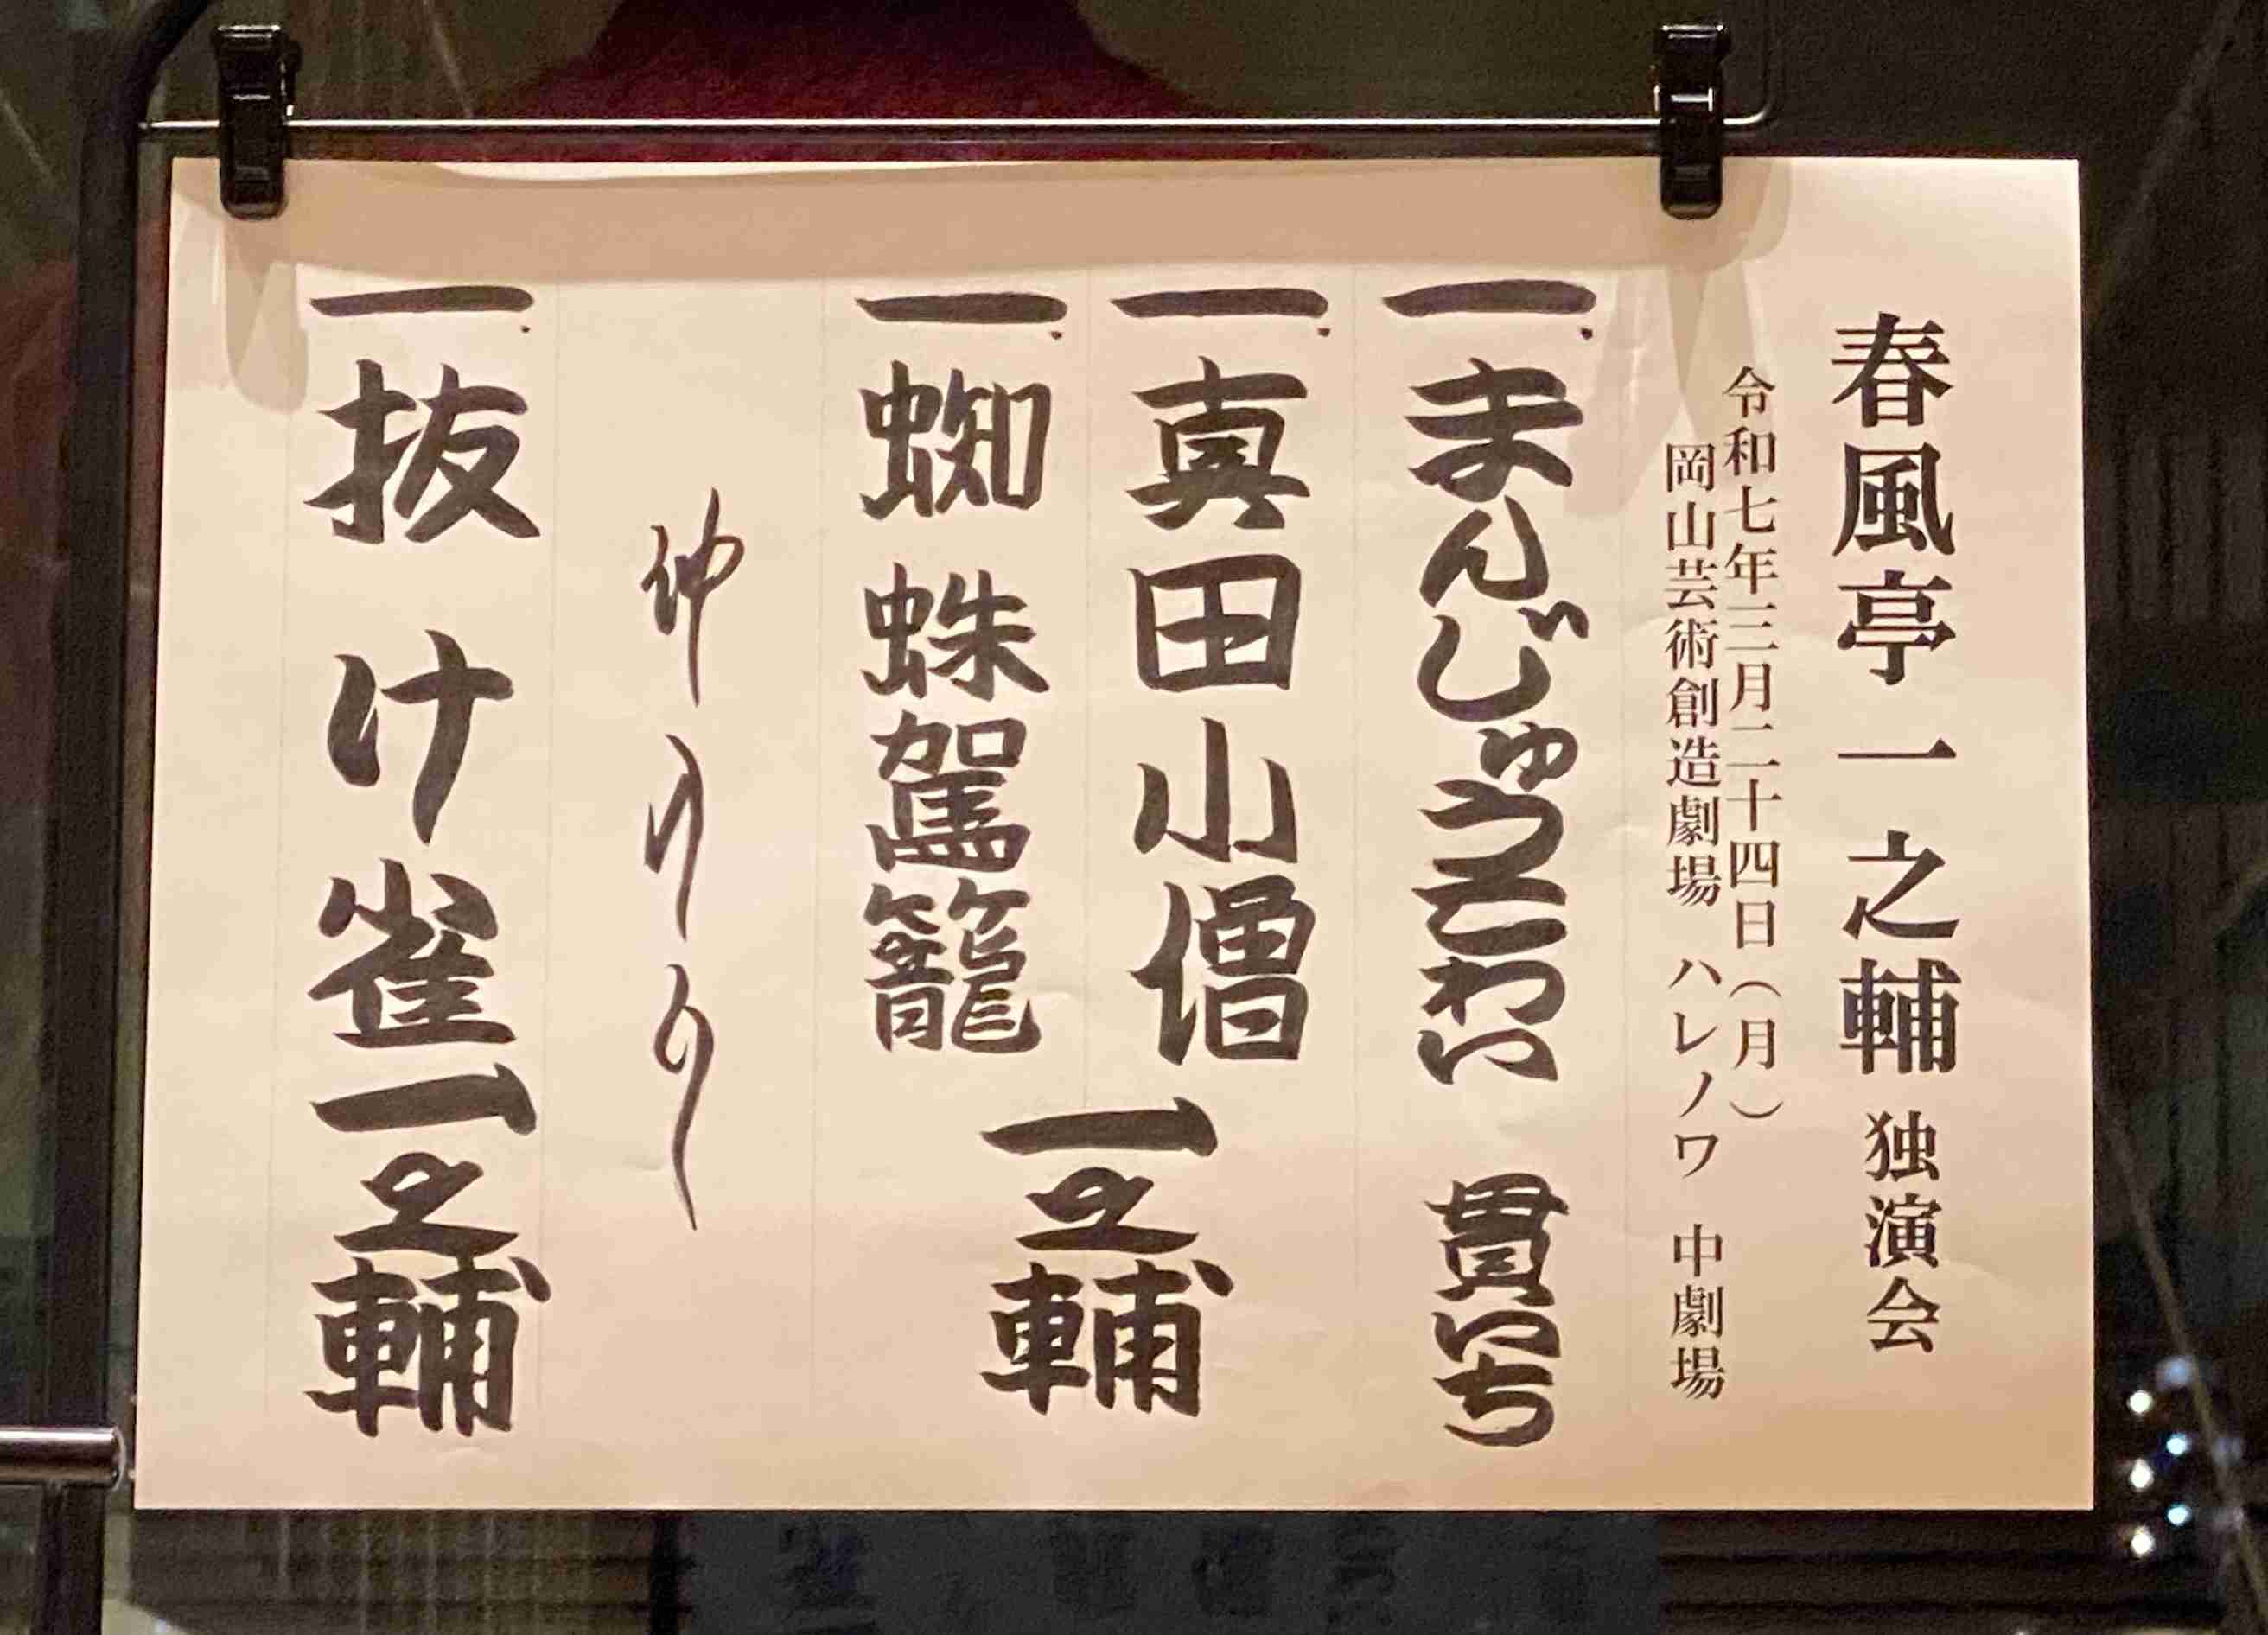 春風亭一之輔 独演会
令和七年三月二十四日（月）
岡山芸術創造劇場 ハレノワ 中劇場
一.まんじゅうこわい 貫いち
一.真田小僧
一.蜘蛛駕籠
一之輔
仲入り
一.抜け雀 一之輔